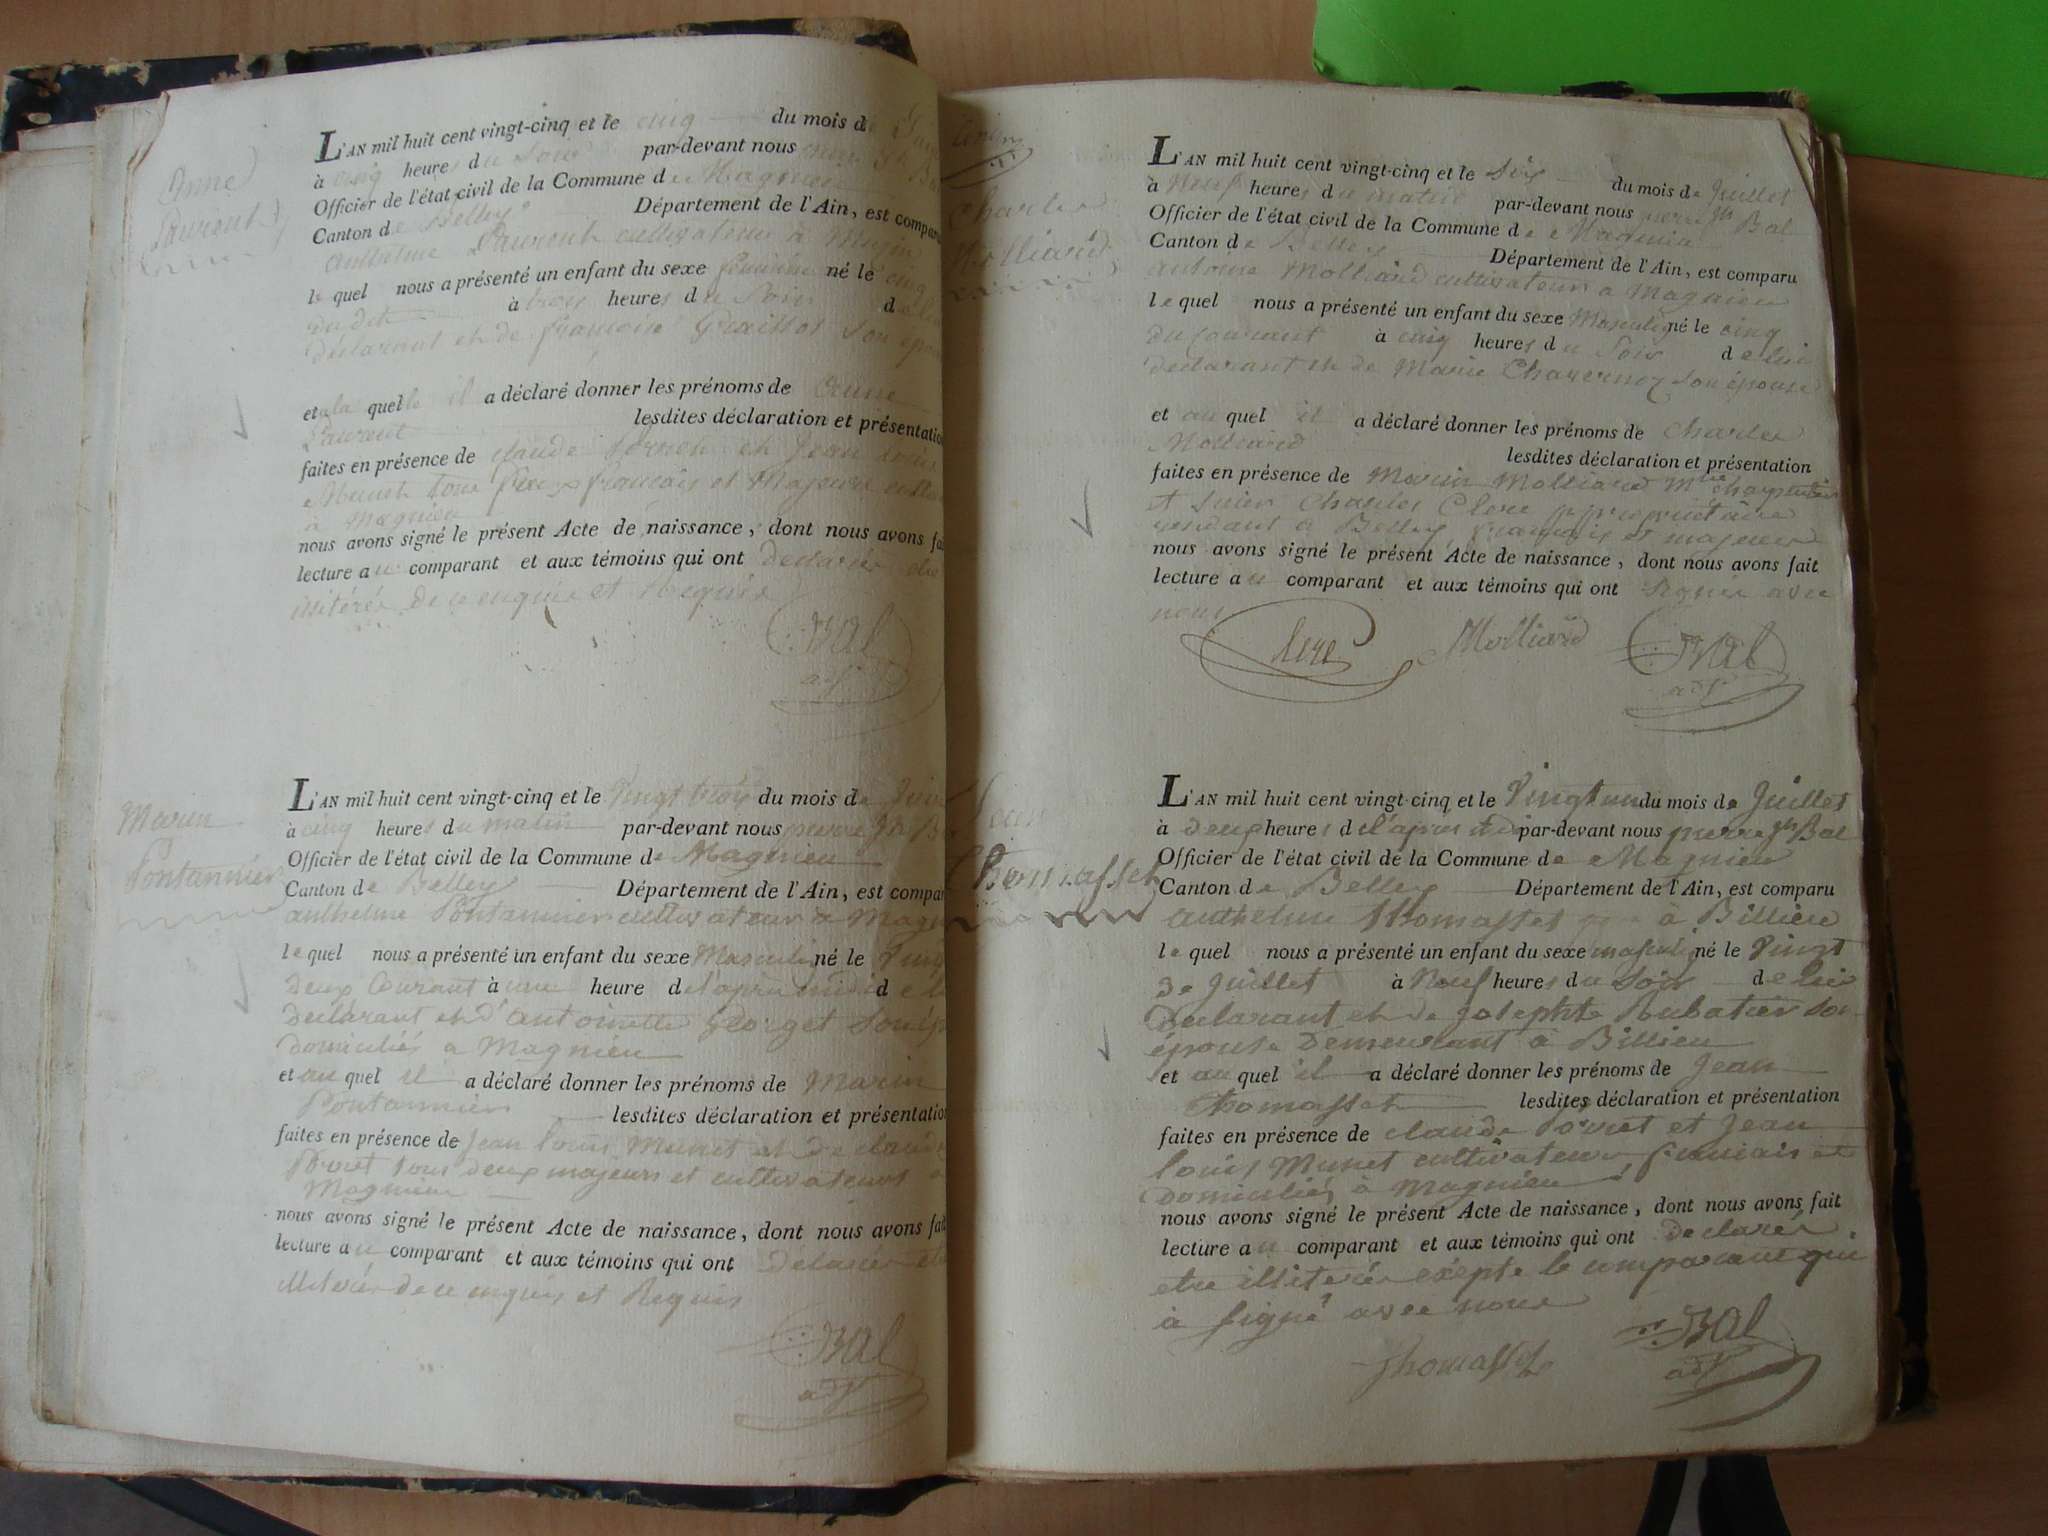 Anne
Laurent
L'AN mil huit cent vingt-cinq et le cinq du mois de
à cinq heures du Soir par-devant nous
Officier de l'état civil de la Commune de Magnieu
Canton de Belley Département de l'Ain, est compar
anthelme Laurent cultivateur à
le quel nous a présenté un enfant du sexe feminin né le cinq
du dit à trois heures du Soir de
déclarant et de françoise son
et a la quelle il a déclaré donner les prénoms de Anne
Laurent lesdites déclaration et présentatio
faites en présence de claude et Jean Louis
Munet tous deux français et Majeurs
à Magnieu
nous avons signé le présent Acte de naissance, dont nous avons fai
lecture au comparant et aux témoins qui ont declarés
de ce enquis et Requis
Bal
adjt
Marin
Pontannier
L'AN mil huit cent vingt-cinq et le Vingt trois du mois de
à cinq heures du matin par-devant nous pierre Jh B
Officier de l'état civil de la Commune de Magnieu
Canton de Belley Département de l'Ain, est compar
anthelme Pontannier cultivateur a Magn
le quel nous a présenté un enfant du sexe Masculin né le Ving
deux Courant à une heure de l'après midi de
declarant et d'antoinette Georget
domiciliés a Magnieu
et au quel il a déclaré donner les prénoms de Marin
Pontannier lesdites déclaration et présentatio
faites en présence de Jean louis Munet et de claude
tous deux majeurs et cultivateurs a
Magnieu
nous avons signé le présent Acte de naissance, dont nous avons fai
lecture au comparant et aux témoins qui ont
de ce enquis et Requis
Bal
adjt
Charles
Molliard
L'AN mil huit cent vingt-cinq et le Six du mois de Juillet
à Neuf heures du matin par-devant nous pierre Jh Bal
Officier de l'état civil de la Commune de Magnieu
Canton de Belley Département de l'Ain, est comparu
antoine Molliard cultivateur a Magnieu
le quel nous a présenté un enfant du sexe Masculin né le cinq
du courant à cinq heures du Soir de lui
declarant et de Marie Charvernoz son épouse
et au quel il a déclaré donner les prénoms de Charles
Molliard lesdites déclaration et présentation
faites en présence de Marin Molliard Mtre charpentier
et Charles Clerc propriétaire
a Belley français et majeurs
nous avons signé le présent Acte de naissance, dont nous avons fait
lecture au comparant et aux témoins qui ont Signés avec
nous
Clerc Molliard Bal
adjt
Jean
Thomasset
L'AN mil huit cent vingt-cinq et le Vingt un du mois de Juillet
à deux heures de l'apres midi par-devant nous pierre Jh Bal
Officier de l'état civil de la Commune de Magnieu
Canton de Belley Département de l'Ain, est comparu
anthelme Thomasset à Billieu
le quel nous a présenté un enfant du sexe masculin né le Vingt
de Juillet à Neuf heures du Soir de lui
declarant et de Josephte Rubatier son
épouse demeurant à Billieu
et au quel il a déclaré donner les prénoms de Jean
Thomasset lesdites déclaration et présentation
faites en présence de claude et Jean
louis Munet cultivateurs français et
domiciliés à Magnieu
nous avons signé le présent Acte de naissance, dont nous avons fait
lecture au comparant et aux témoins qui ont declarés
etre illiterés exepte le comparant qui
à signé avec nous
Thomasset Bal
adjt